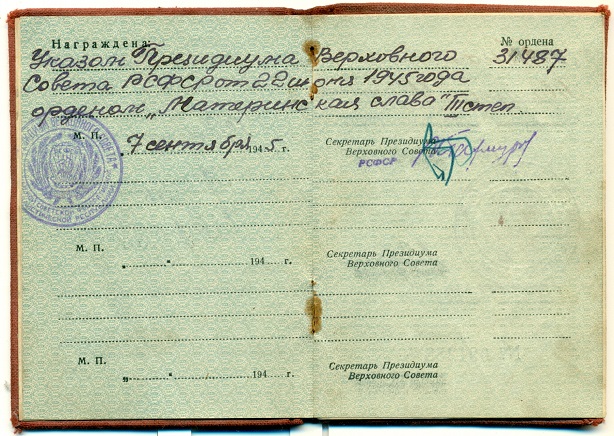 Награждена:
№ ордена
Указом Президиума Верховного 31487
Совета РСФСР от 22 июня 1945 года
орденом „Материнская слава" III степ
М. П. 7 сентября 1945 г.
Секретарь Президиума
Верховного Совета
РСФСР
М. П.
„ " 194 г.
Секретарь Президиума
Верховного Совета
М. П.
„ " 194 г.
Секретарь Президиума
Верховного Совета